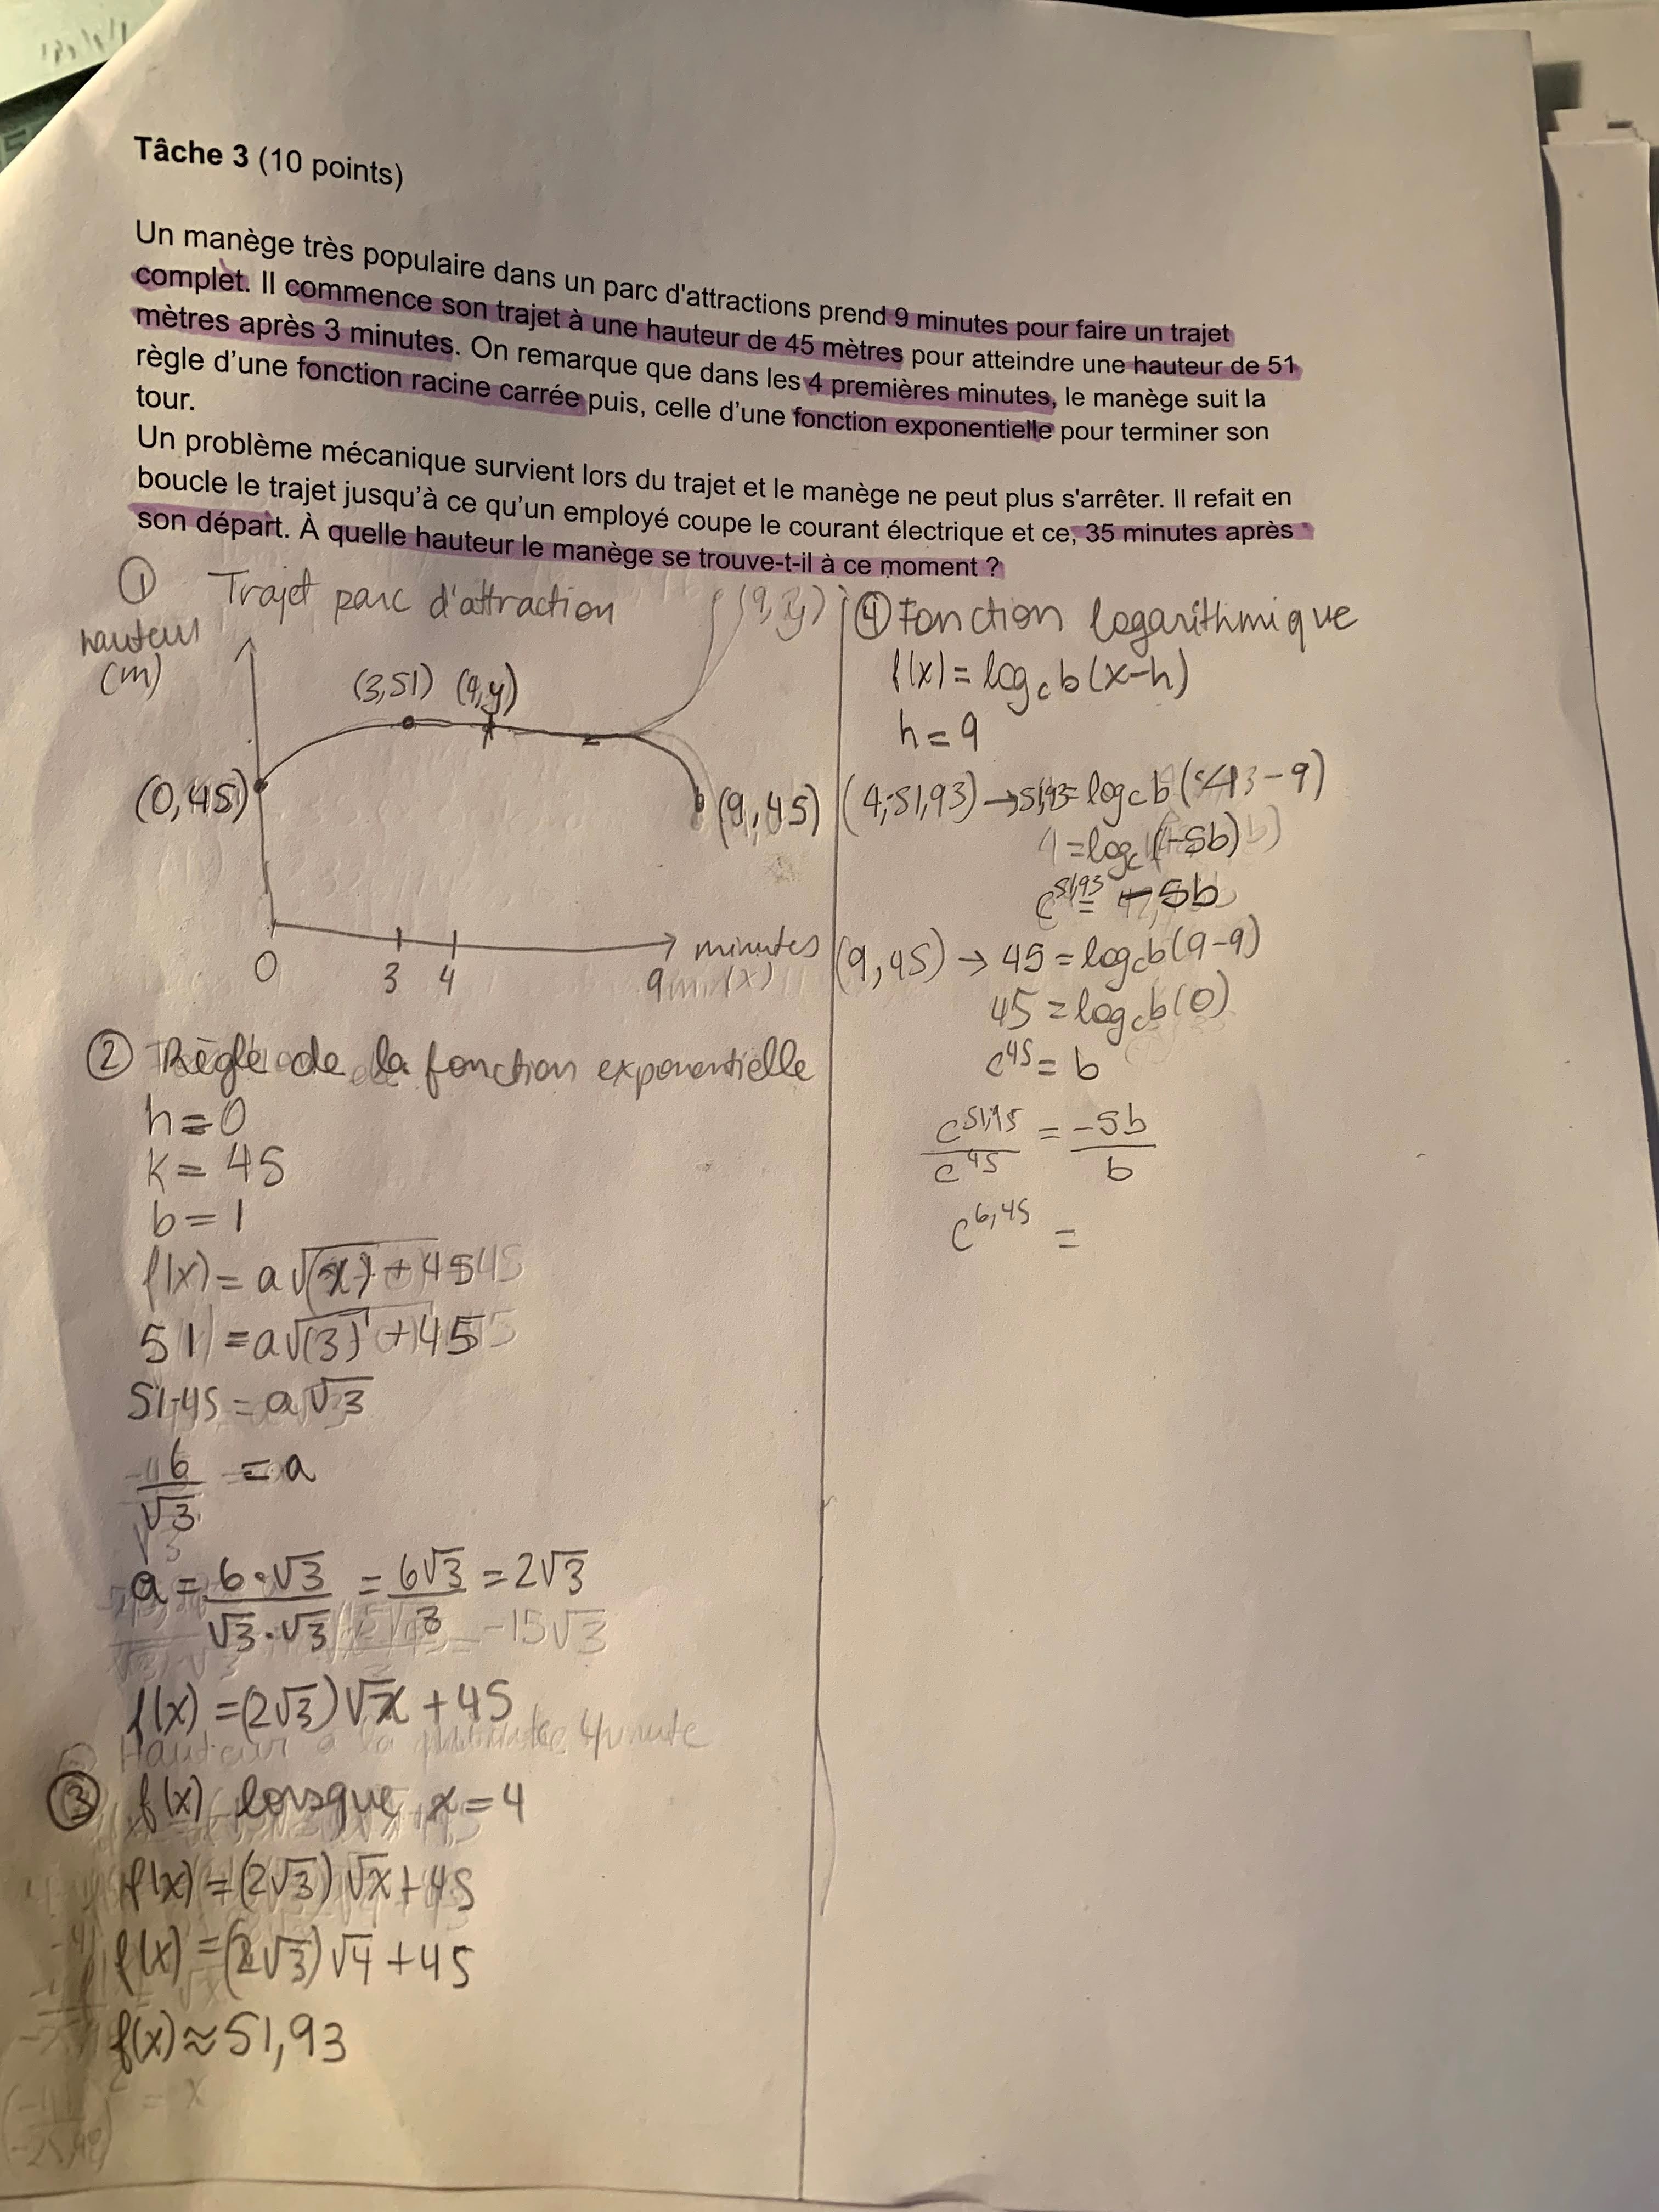 Tâche 3 (10 points)
Un manège très populaire dans un parc d'attractions prend 9 minutes pour faire un trajet
complet. Il commence son trajet à une hauteur de 45 mètres pour atteindre une hauteur de 51
mètres après 3 minutes. On remarque que dans les 4 premières minutes, le manège suit la
règle d'une fonction racine carrée puis, celle d'une fonction exponentielle pour terminer son
tour.
Un problème mécanique survient lors du trajet et le manège ne peut plus s'arrêter. Il refait en
boucle le trajet jusqu'à ce qu'un employé coupe le courant électrique et ce, 35 minutes après
son départ. À quelle hauteur le manège se trouve-t-il à ce moment ?
① Trajet parc d'attraction
(9, y)
hauteur
(m)
(3,51) (4,y)
(0,45)
(9,45)
minutes
(x)
0 3 4 9
② Règle de la fonction exponentielle
h=0
K=45
b=1
f(x)=a√(x)+45
51=a√(3)+45
51-45=a√3
6/√3 =a
a=6·√3/√3·√3=6√3/3=2√3
-15√3
f(x)=(2√3)√x+45
Hauteur à la
③ f(x) lorsque x=4
f(x)=(2√3)√x+45
f(x)=(2√3)√4+45
f(x)≈51,93
④ Fonction logarithmique
f(x)=log_c b(x-h)
h=9
(4,51,93)→51,93=log_c b(
-9)
=log_c(-5b)
c^51,93=-5b
(9,45)→45=log_c b(9-9)
45=log_c b(0)
c^45=b
c^51,95/c^45=-5b/b
c^6,45=